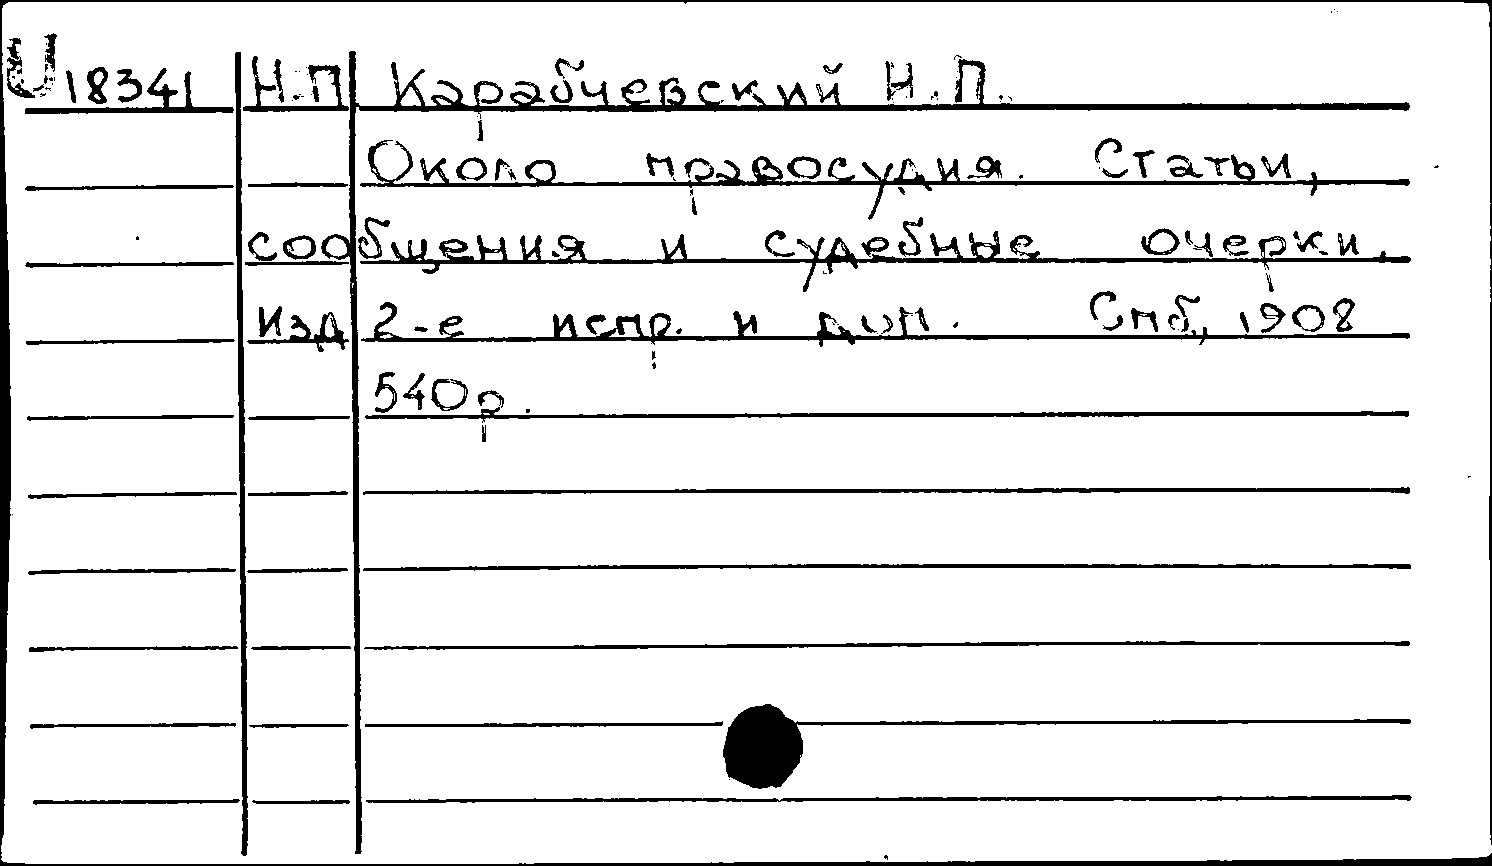 U18341 Н.П Карабчевский Н.П.
Около правосудия. Статьи,
сообщения и судебные очерки.
Изд 2-е испр. и доп. Спб., 1908
540р.